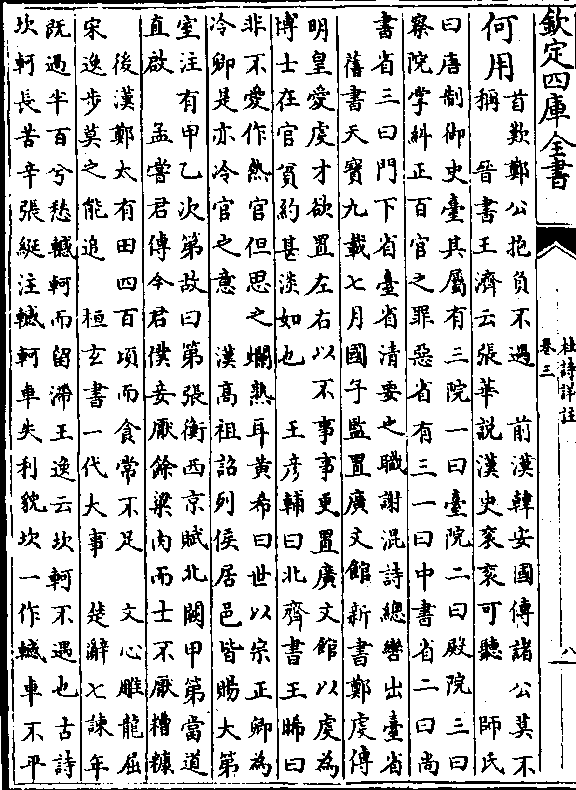 欽定四庫全書
杜詩詳註
卷三
八
何用
首歎鄭公抱負不遇　前漢韓安國傳諸公莫不
稱　晉書王濟云張華說漢史袞袞可聽　師氏
曰唐制御史臺其屬有三院一曰臺院二曰殿院三曰
察院掌糾正百官之罪惡省有三一曰中書省二曰尚
書省三曰門下省臺省清要之職謝混詩總轡出臺省
舊書天寶九載七月國子監置廣文館新書鄭虔傳
明皇愛虔才欲置左右以不事事更置廣文館以虔為
博士在官貧約甚淡如也　王彥輔曰北齊書王晞曰
非不愛作熱官但思之爛熟耳黃希曰世以宗正卿為
冷卿是亦冷官之意　漢高祖詔列侯居邑皆賜大第
室注有甲乙次第故曰第張衡西京賦北闕甲第當道
直啟　孟嘗君傳今君僕妾厭餘粱肉而士不厭糟糠
後漢鄭太有田四百頃而食常不足　文心雕龍屈
宋逸步莫之能追　桓玄書一代大事　楚辭七諫年
既過半百兮愁轗軻而留滯王逸云坎軻不遇也古詩
坎軻長苦辛張綖注轗軻車失利貌坎一作轗車不平